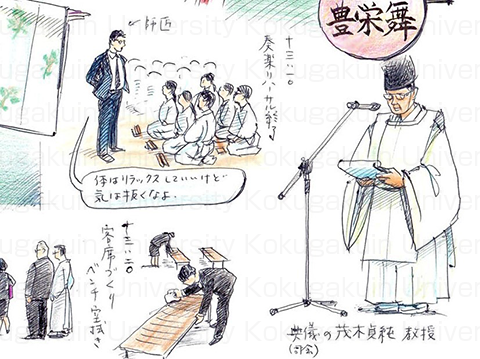 豊栄舞
←師匠
十三:一〇
奏楽リハーサル終了
体はリラックスしていいけど
気は抜くなよ.
十三:二〇
客席づくり
ベンチ空拭き
典儀の茂木貞純 教授
(司会)
Kokugakuin University